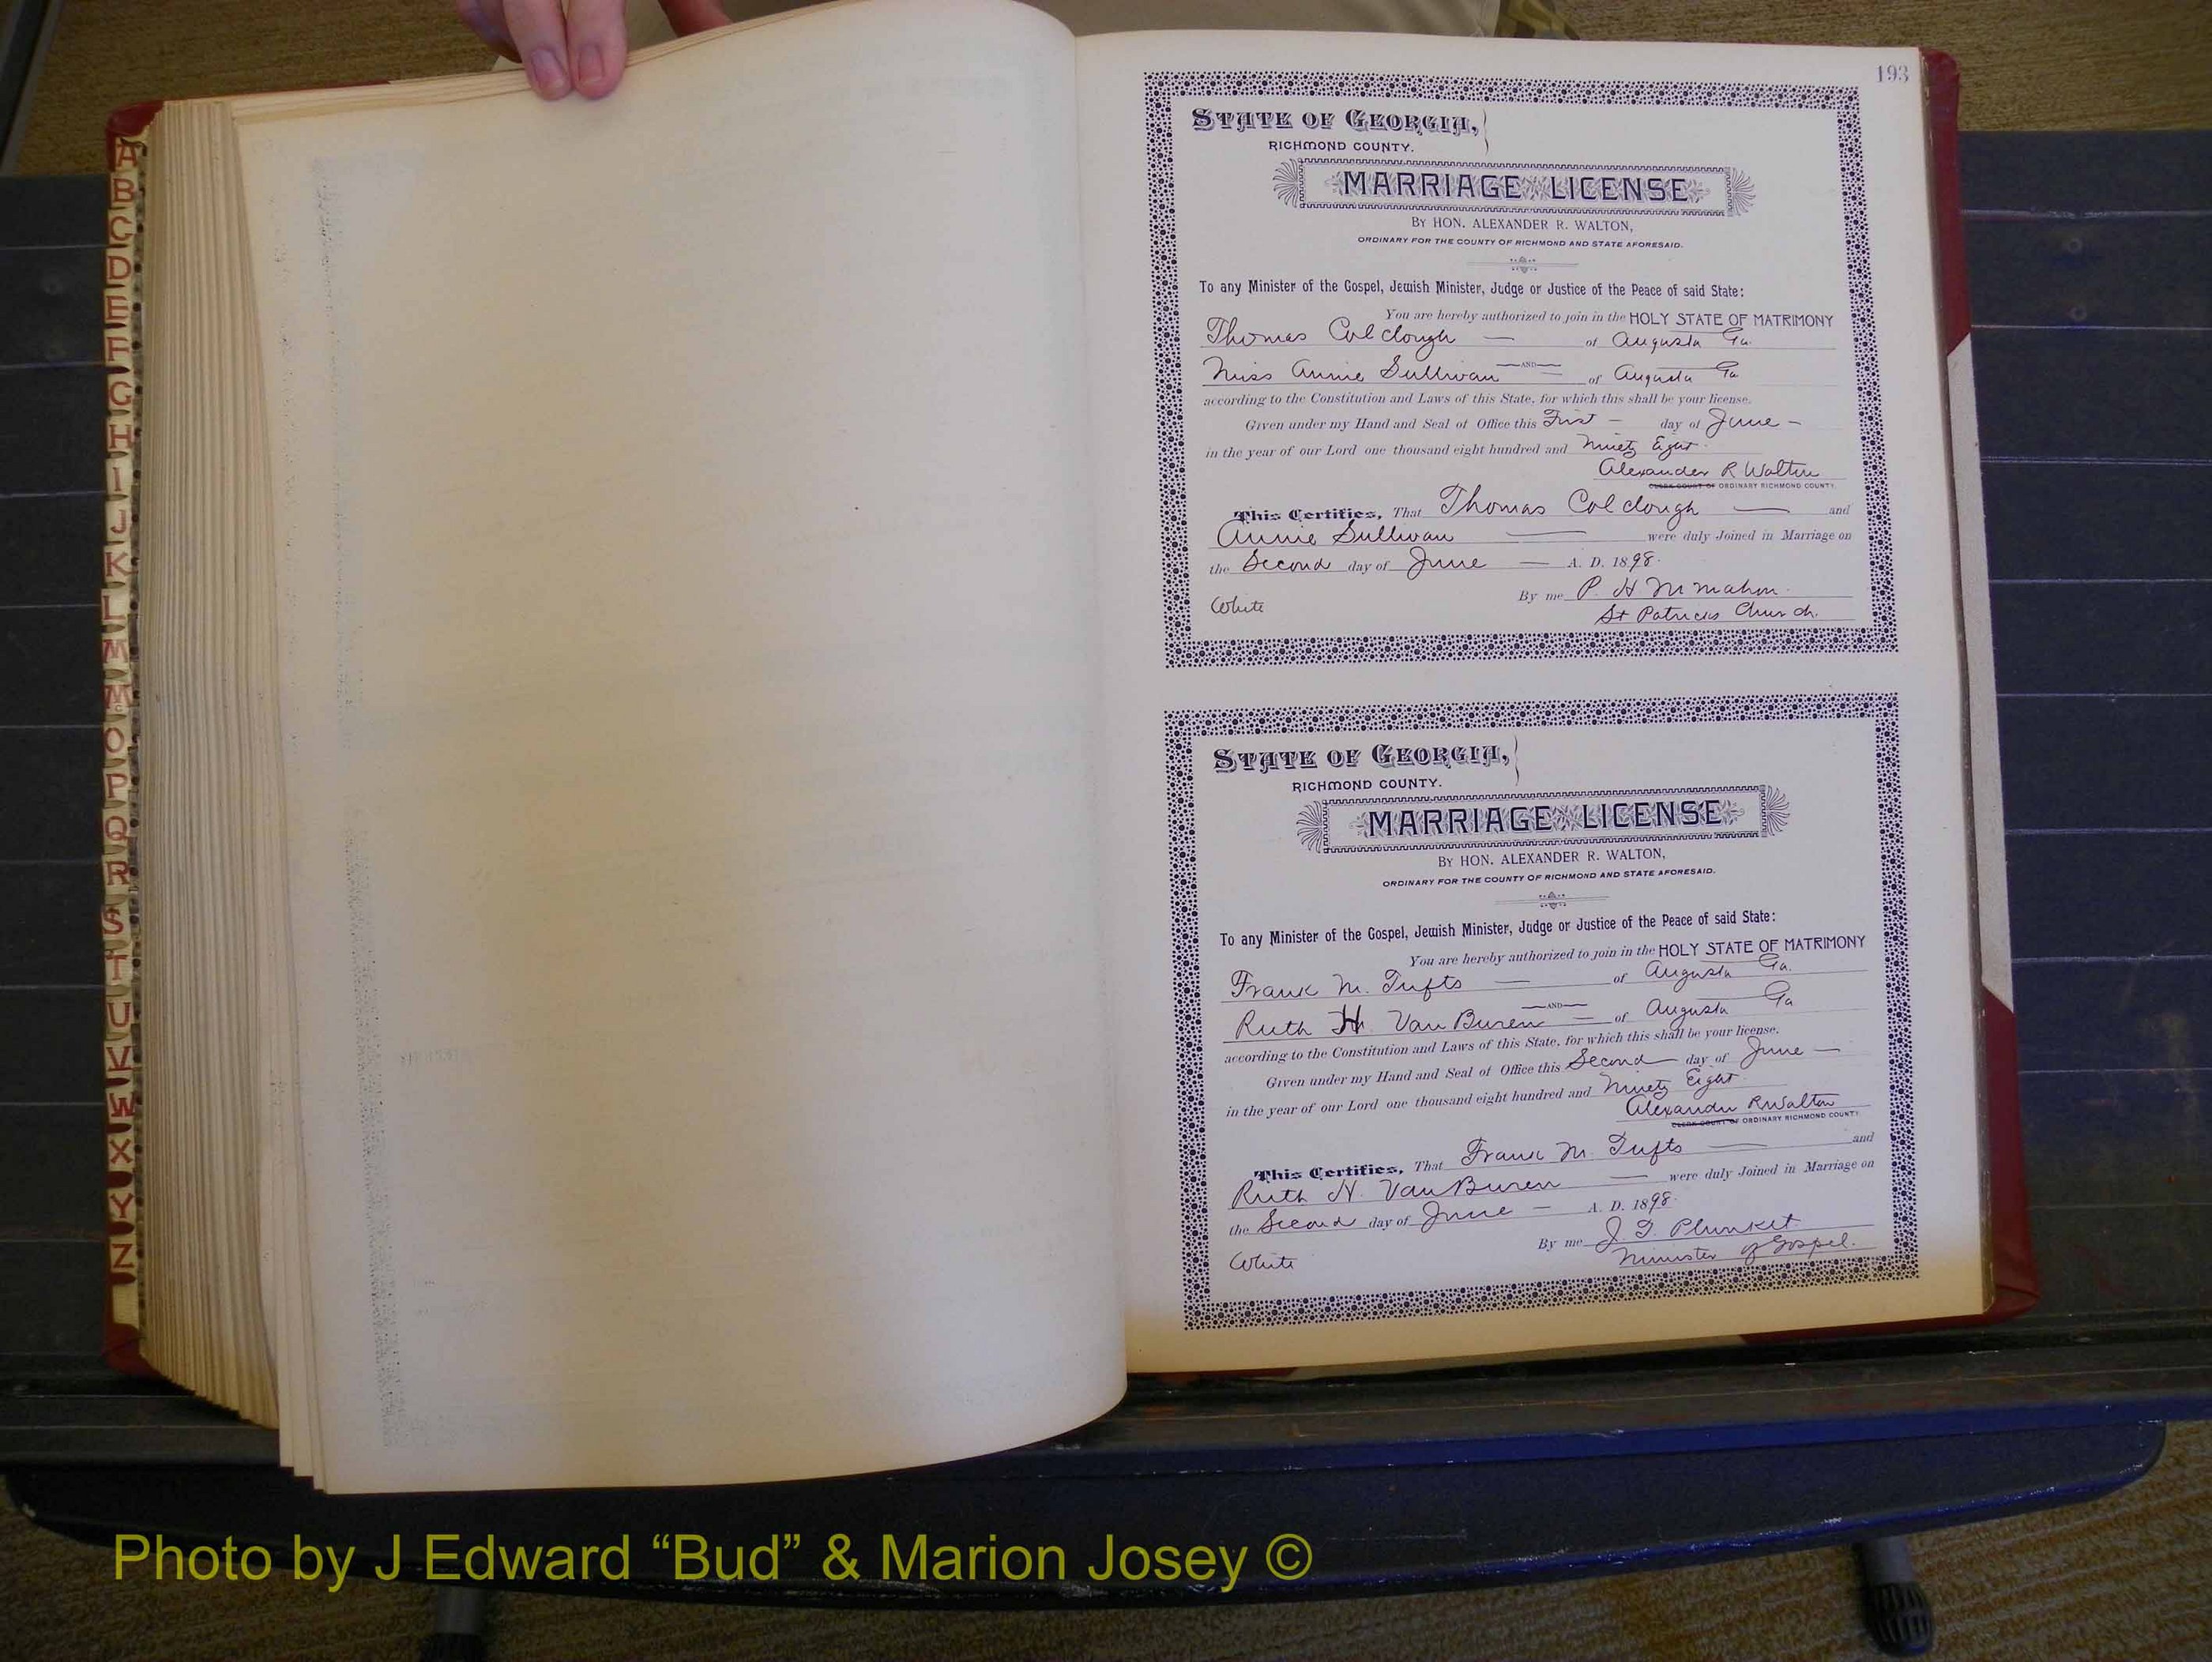 193
A
B
C
D
E
F
G
H
I
J
K
L
M
Mc
O
P
Q
R
S
T
U
V
W
X
Y
Z
STATE OF GEORGIA,
RICHMOND COUNTY.
MARRIAGE LICENSE
BY HON. ALEXANDER R. WALTON,
ORDINARY FOR THE COUNTY OF RICHMOND AND STATE AFORESAID.
To any Minister of the Gospel, Jewish Minister, Judge or Justice of the Peace of said State:
You are hereby authorized to join in the HOLY STATE OF MATRIMONY
Thomas Colclough — of Augusta Ga.
AND
Miss Annie Sullivan — of Augusta Ga
according to the Constitution and Laws of this State, for which this shall be your license.
Given under my Hand and Seal of Office this First — day of June —
in the year of our Lord one thousand eight hundred and Ninety Eight.
Alexander R Walton
CLERK COURT OF ORDINARY RICHMOND COUNTY.
This Certifies, That Thomas Colclough — and
Annie Sullivan — were duly Joined in Marriage on
the Second day of June — A. D. 1898.
By me P. H McMahon.
White
St Patricks Church.
STATE OF GEORGIA,
RICHMOND COUNTY.
MARRIAGE LICENSE
BY HON. ALEXANDER R. WALTON,
ORDINARY FOR THE COUNTY OF RICHMOND AND STATE AFORESAID.
To any Minister of the Gospel, Jewish Minister, Judge or Justice of the Peace of said State:
You are hereby authorized to join in the HOLY STATE OF MATRIMONY
Frank M. Tufts — of Augusta Ga.
AND
Ruth H. Van Buren — of Augusta Ga
according to the Constitution and Laws of this State, for which this shall be your license.
Given under my Hand and Seal of Office this Second — day of June —
in the year of our Lord one thousand eight hundred and Ninety Eight.
Alexander R Walton
CLERK COURT OF ORDINARY RICHMOND COUNTY.
This Certifies, That Frank M. Tufts — and
Ruth H. Van Buren — were duly Joined in Marriage on
the Second day of June — A. D. 1898.
By me J. T. Plunket
White
Minister of Gospel.
Photo by J Edward “Bud” & Marion Josey ©